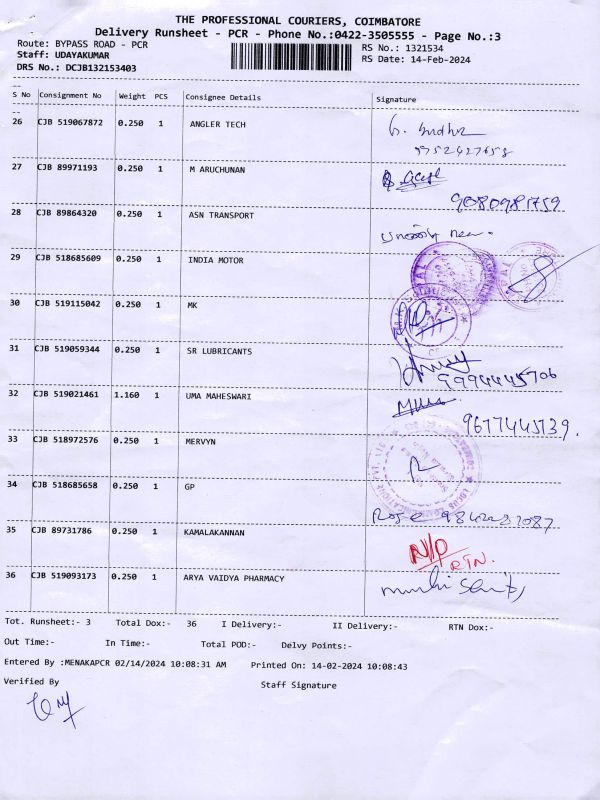 THE PROFESSIONAL COURIERS, COIMBATORE
Delivery Runsheet - PCR - Phone No.:0422-3505555 - Page No.:3
Route: BYPASS ROAD - PCR
RS No.: 1321534
Staff: UDAYAKUMAR
RS Date: 14-Feb-2024
DRS No.: DCJB132153403
S No Consignment No Weight PCS Consignee Details Signature
26 CJB 519067872 0.250 1 ANGLER TECH
9752427658
27 CJB 89971193 0.250 1 M ARUCHUNAN
9080981759
28 CJB 89864320 0.250 1 ASN TRANSPORT
29 CJB 518685609 0.250 1 INDIA MOTOR
30 CJB 519115042 0.250 1 MK
31 CJB 519059344 0.250 1 SR LUBRICANTS
9994445706
32 CJB 519021461 1.160 1 UMA MAHESWARI
9677445739.
33 CJB 518972576 0.250 1 MERVYN
34 CJB 518685658 0.250 1 GP
35 CJB 89731786 0.250 1 KAMALAKANNAN N/D
RTN.
36 CJB 519093173 0.250 1 ARYA VAIDYA PHARMACY
Tot. Runsheet:- 3 Total Dox:- 36 I Delivery:- II Delivery:- RTN Dox:-
Out Time:- In Time:- Total POD:- Delvy Points:-
Entered By :MENAKAPCR 02/14/2024 10:08:31 AM Printed On: 14-02-2024 10:08:43
Verified By Staff Signature